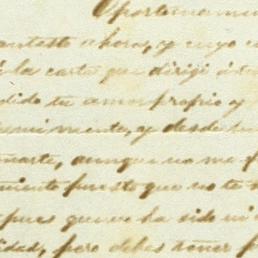 Oportuname
antesto ahora, y cuyo c
á la carta que dirigi á tu
dido tu amor propio y
mi mente, y desde lue
ñarte, aunque no me p
miento puesto que no te
pues que no ha sido mi
idad, pero debes tener p